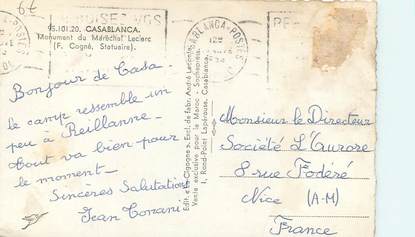 6f
95.101.20. CASABLANCA.
Monument du Maréchal Leclerc
(F. Cogné, Statuaire).
CASABLANCA-POSTES
Bonjour de Casa.
Le camp ressemble un
peu à Reillanne.
Tout va bien pour
le moment—
Sincères Salutations
Jean Tonani
Edit. « La Cigogne ». Excl. de fabr. André Leconte
Vente exclusive pour le Maroc - Sochepress
1, Rond-Point Lapérouse, Casablanca.
Monsieur le Directeur
Société L'Aurore
8 rue Fodéré
Nice (A-M)
France